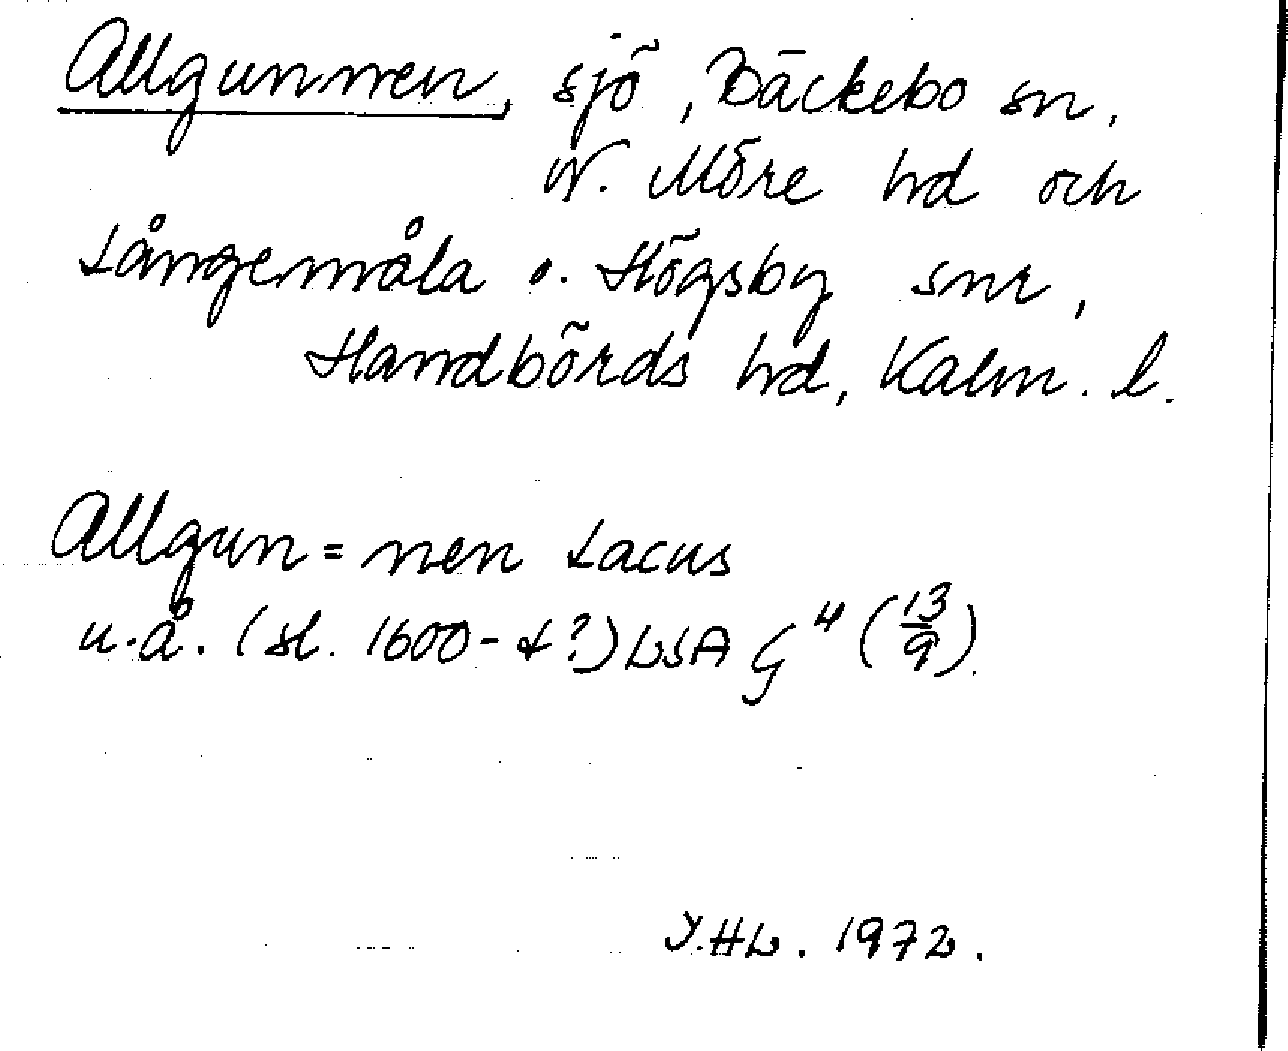 Allgunnen, sjö, Bäckebo sn,
N. Möre hd och
Långemåla o. Högsby snr,
Handbörds hd, Kalm. l.
Allgun= nen Lacus
u.å. (sl. 1600-t?) LSA G⁴ (13/9).
Y.HL. 1972.